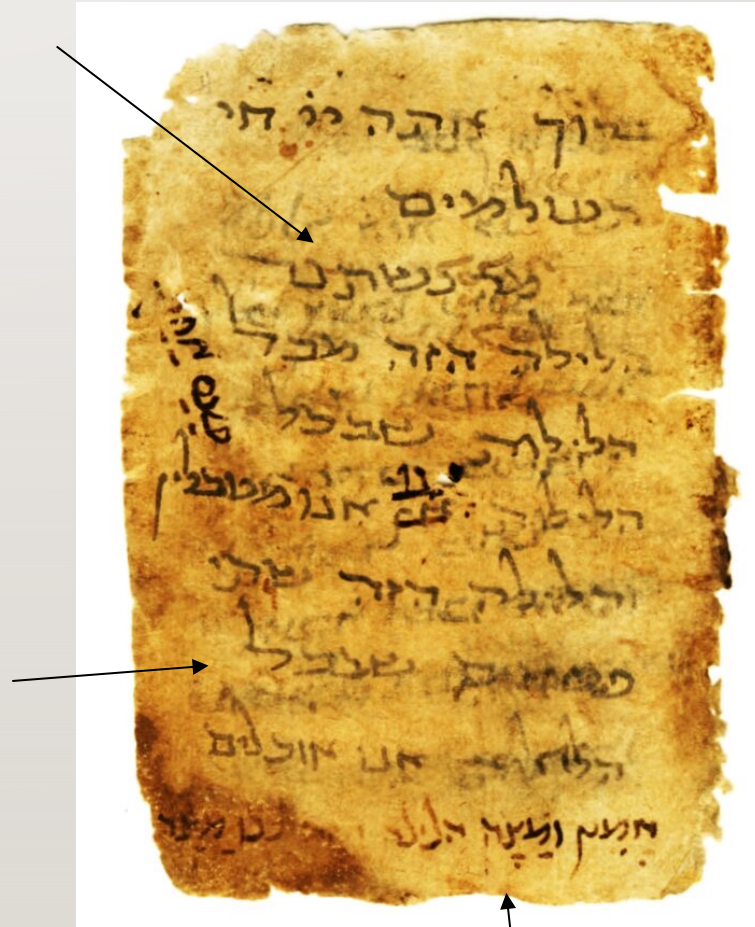 ברוך אתה ייי חי
העולמים
מה נשתנה
הלילה הזה מכל
הלילות שבכל
הלילות אין אנו מטבלין
והלילה הזה שתי
פעמים שבכל
הלילות אנו אוכלים
חמץ ומצה הלילה מצה
פעם